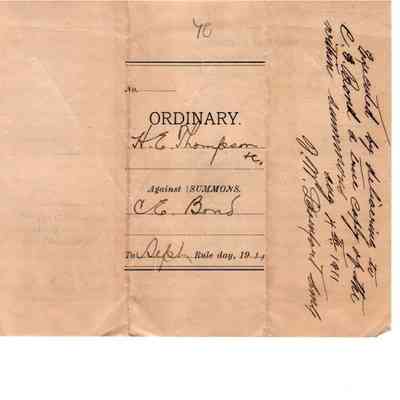 70
No.
ORDINARY.
H. E. Thompson
&c,
Against } SUMMONS.
C E. Bond
To Sept Rule day, 19
Executed by delivering to
C. E. Bond a true copy of the
within summons
Aug 1911